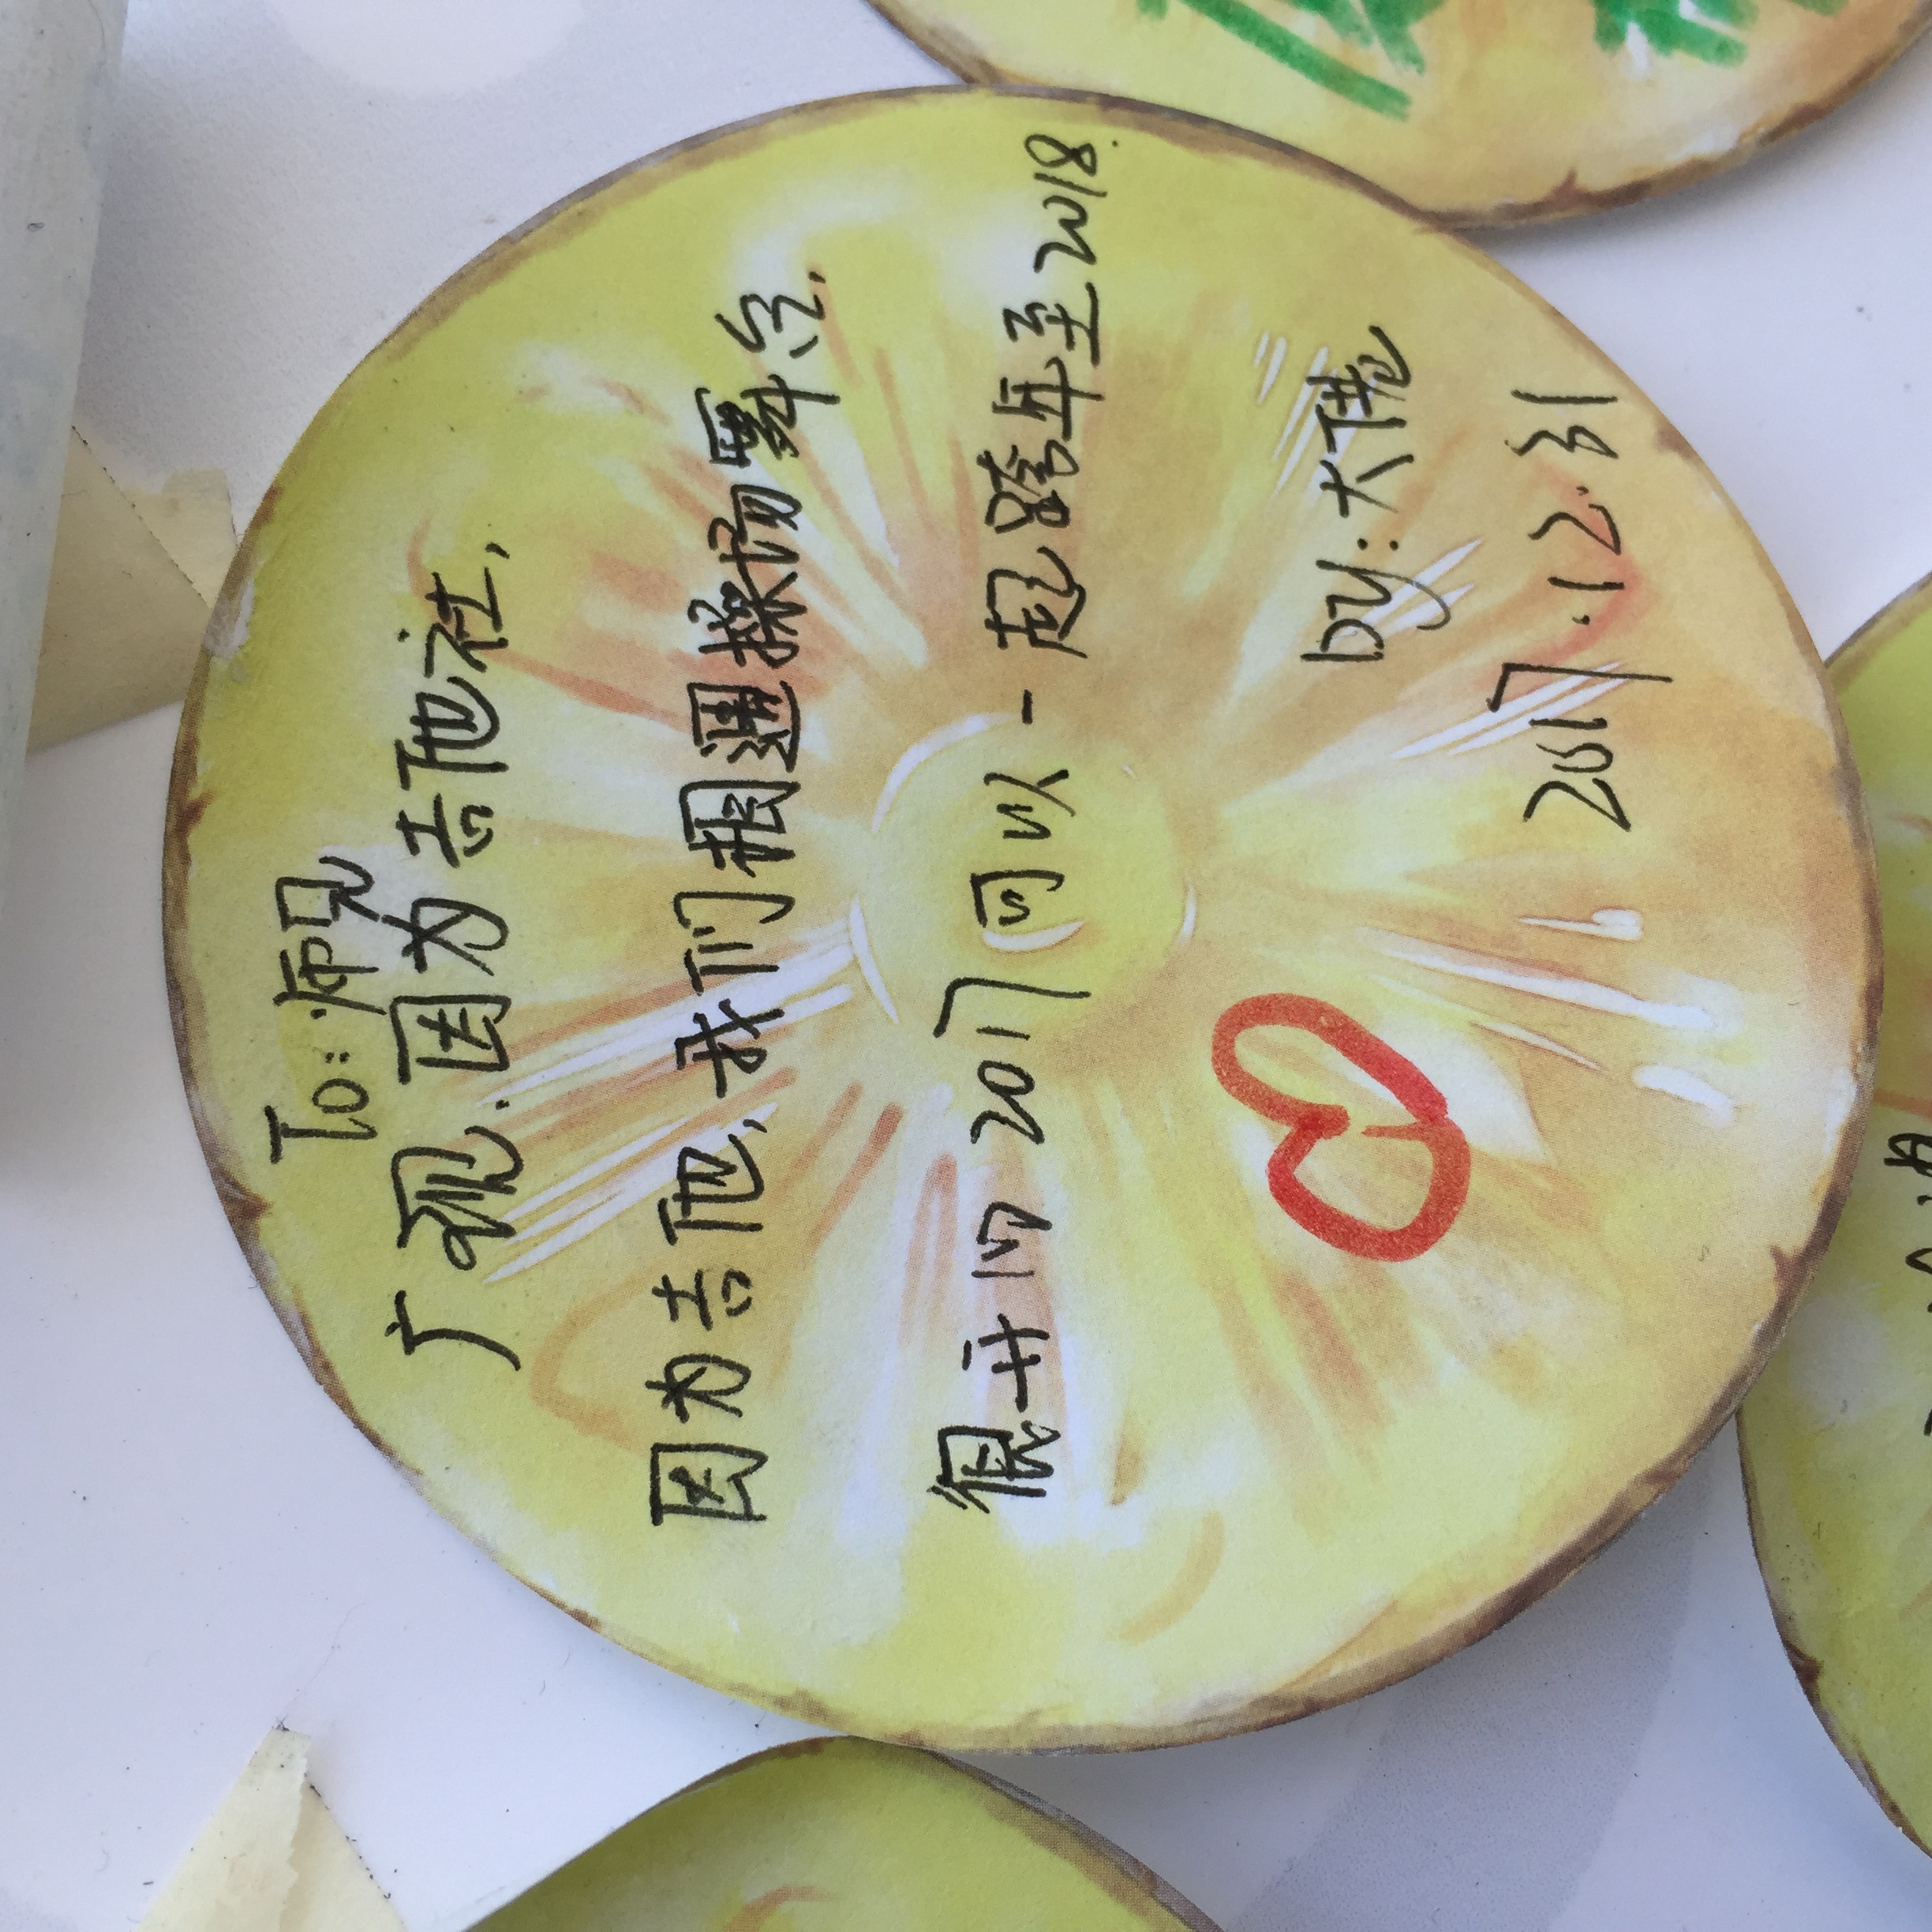 To: 师兄
广现.因为吉他社,
因为吉他,我们相遇操场舞台.
很开心 2017 可以一起跨年至2018.
by: 大佬
2017.12.31